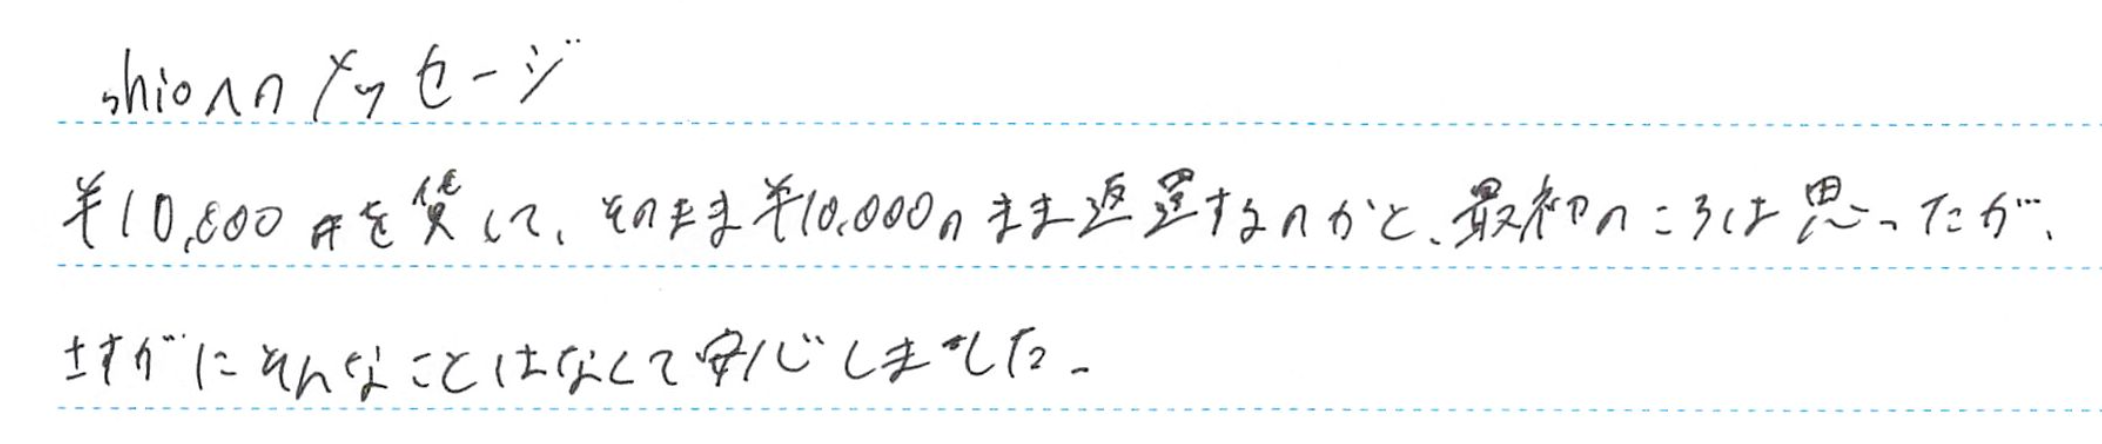 shioへのメッセージ
¥10,000円を貸して、そのまま¥10,000のまま返還するのかと、最初のころは思ったが、
さすがにそんなことはなくて安心しました。